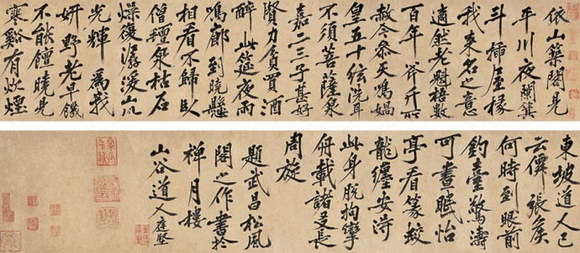 依山築閣見
平川夜闌箕
斗插屋椽
我來名之意
適然老魁梧數
百年斧斤所
赦令參天鳴媧
皇五十弦洗耳
不須菩薩泉
嘉二三子甚好
賢力貧買酒
醉此筵夜雨
鳴廊到曉懸
相看不歸臥
僧氈泉枯石
燥復潺湲山川
光輝為我
妍野老早饑
不能饘曉見
寒谿有炊煙
東坡道人已
去僊張侯
何時到眼前
釣臺驚濤
可晝眠怡
亭看篆蛟
龍纏安得
此身脫拘攣
載諸友長
周旋
題武昌松風
閣之作書於
禪月樓
山谷道人庭堅